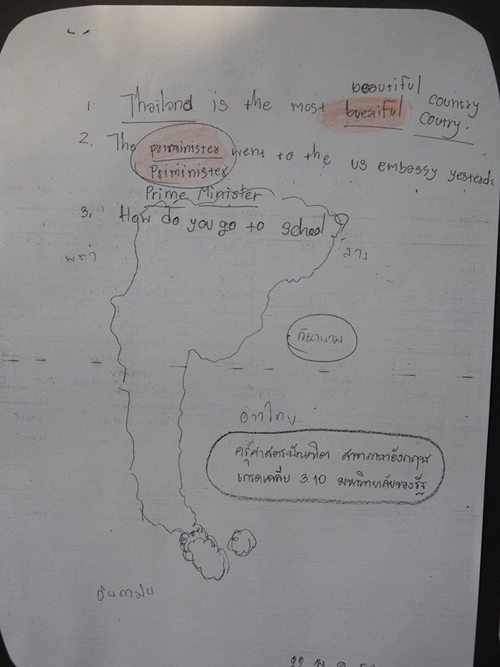 beautiful
1. Thailand is the most bueaiful country
Coutry.
2. The priminister went to the us embassy yesterda
Priminister
Prime Minister
3. How do you go to school
พม่า
ลาว
อ่าวไทย
ครุศาสตรบัณฑิต สาขาภาษาอังกฤษ
เกรดเฉลี่ย 3.10 มหาวิทยาลัยของรัฐ